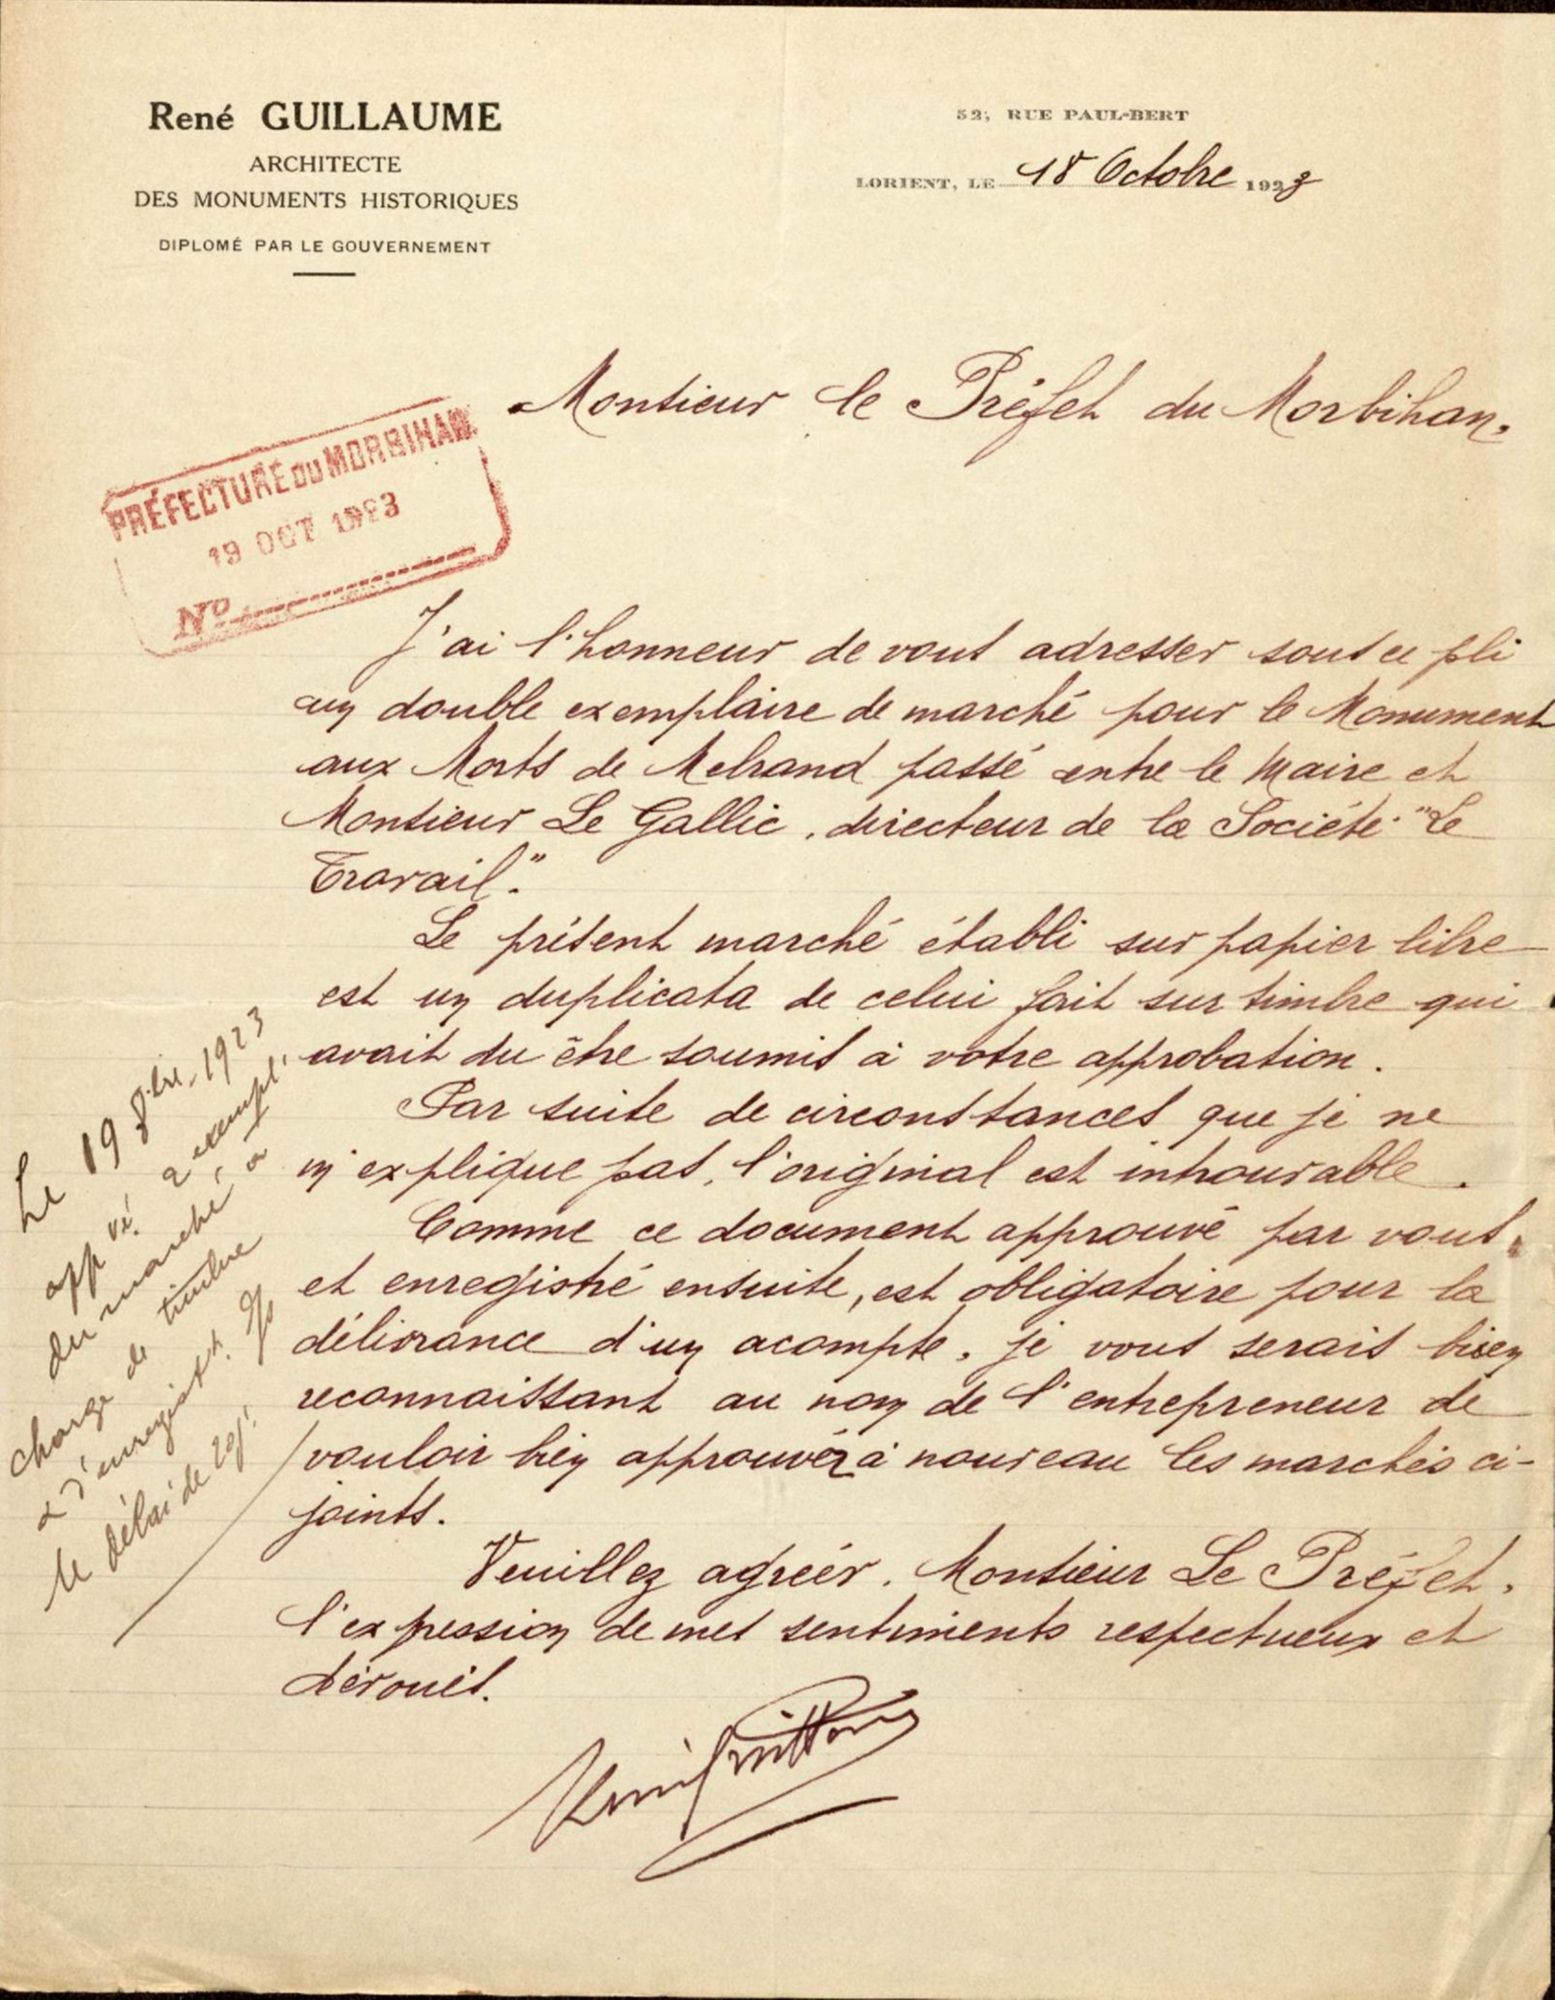 René GUILLAUME
ARCHITECTE
DES MONUMENTS HISTORIQUES
DIPLOMÉ PAR LE GOUVERNEMENT
52, RUE PAUL-BERT
LORIENT, LE 18 Octobre 1923
Monsieur le Préfet du Morbihan,
PRÉFECTURE DU MORBIHAN
19 OCT 1923
No
J'ai l'honneur de vous adresser sous ce pli
un double exemplaire de marché pour le Monument
aux Morts de Melrand passé entre le Maire et
Monsieur Le Gallic, directeur de la Société "Le
Travail".
Le présent marché établi sur papier libre
est un duplicata de celui fait sur timbre qui
avait du être soumis à votre approbation.
Par suite de circonstances que je ne
m'explique pas, l'original est introuvable.
Comme ce document approuvé par vous,
et enregistré ensuite, est obligatoire pour la
délivrance d'un acompte, je vous serais bien
reconnaissant au nom de l'entrepreneur de
vouloir bien approuver à nouveau les marchés ci-
joints.
Veuillez agréer, Monsieur Le Préfet,
l'expression de mes sentiments respectueux et
dévoués.
Le 19 8bre 1923
appvé 2 exempl.
du marché à
charge de timbre
& d'enregistt. ds
le délai de 20 j.